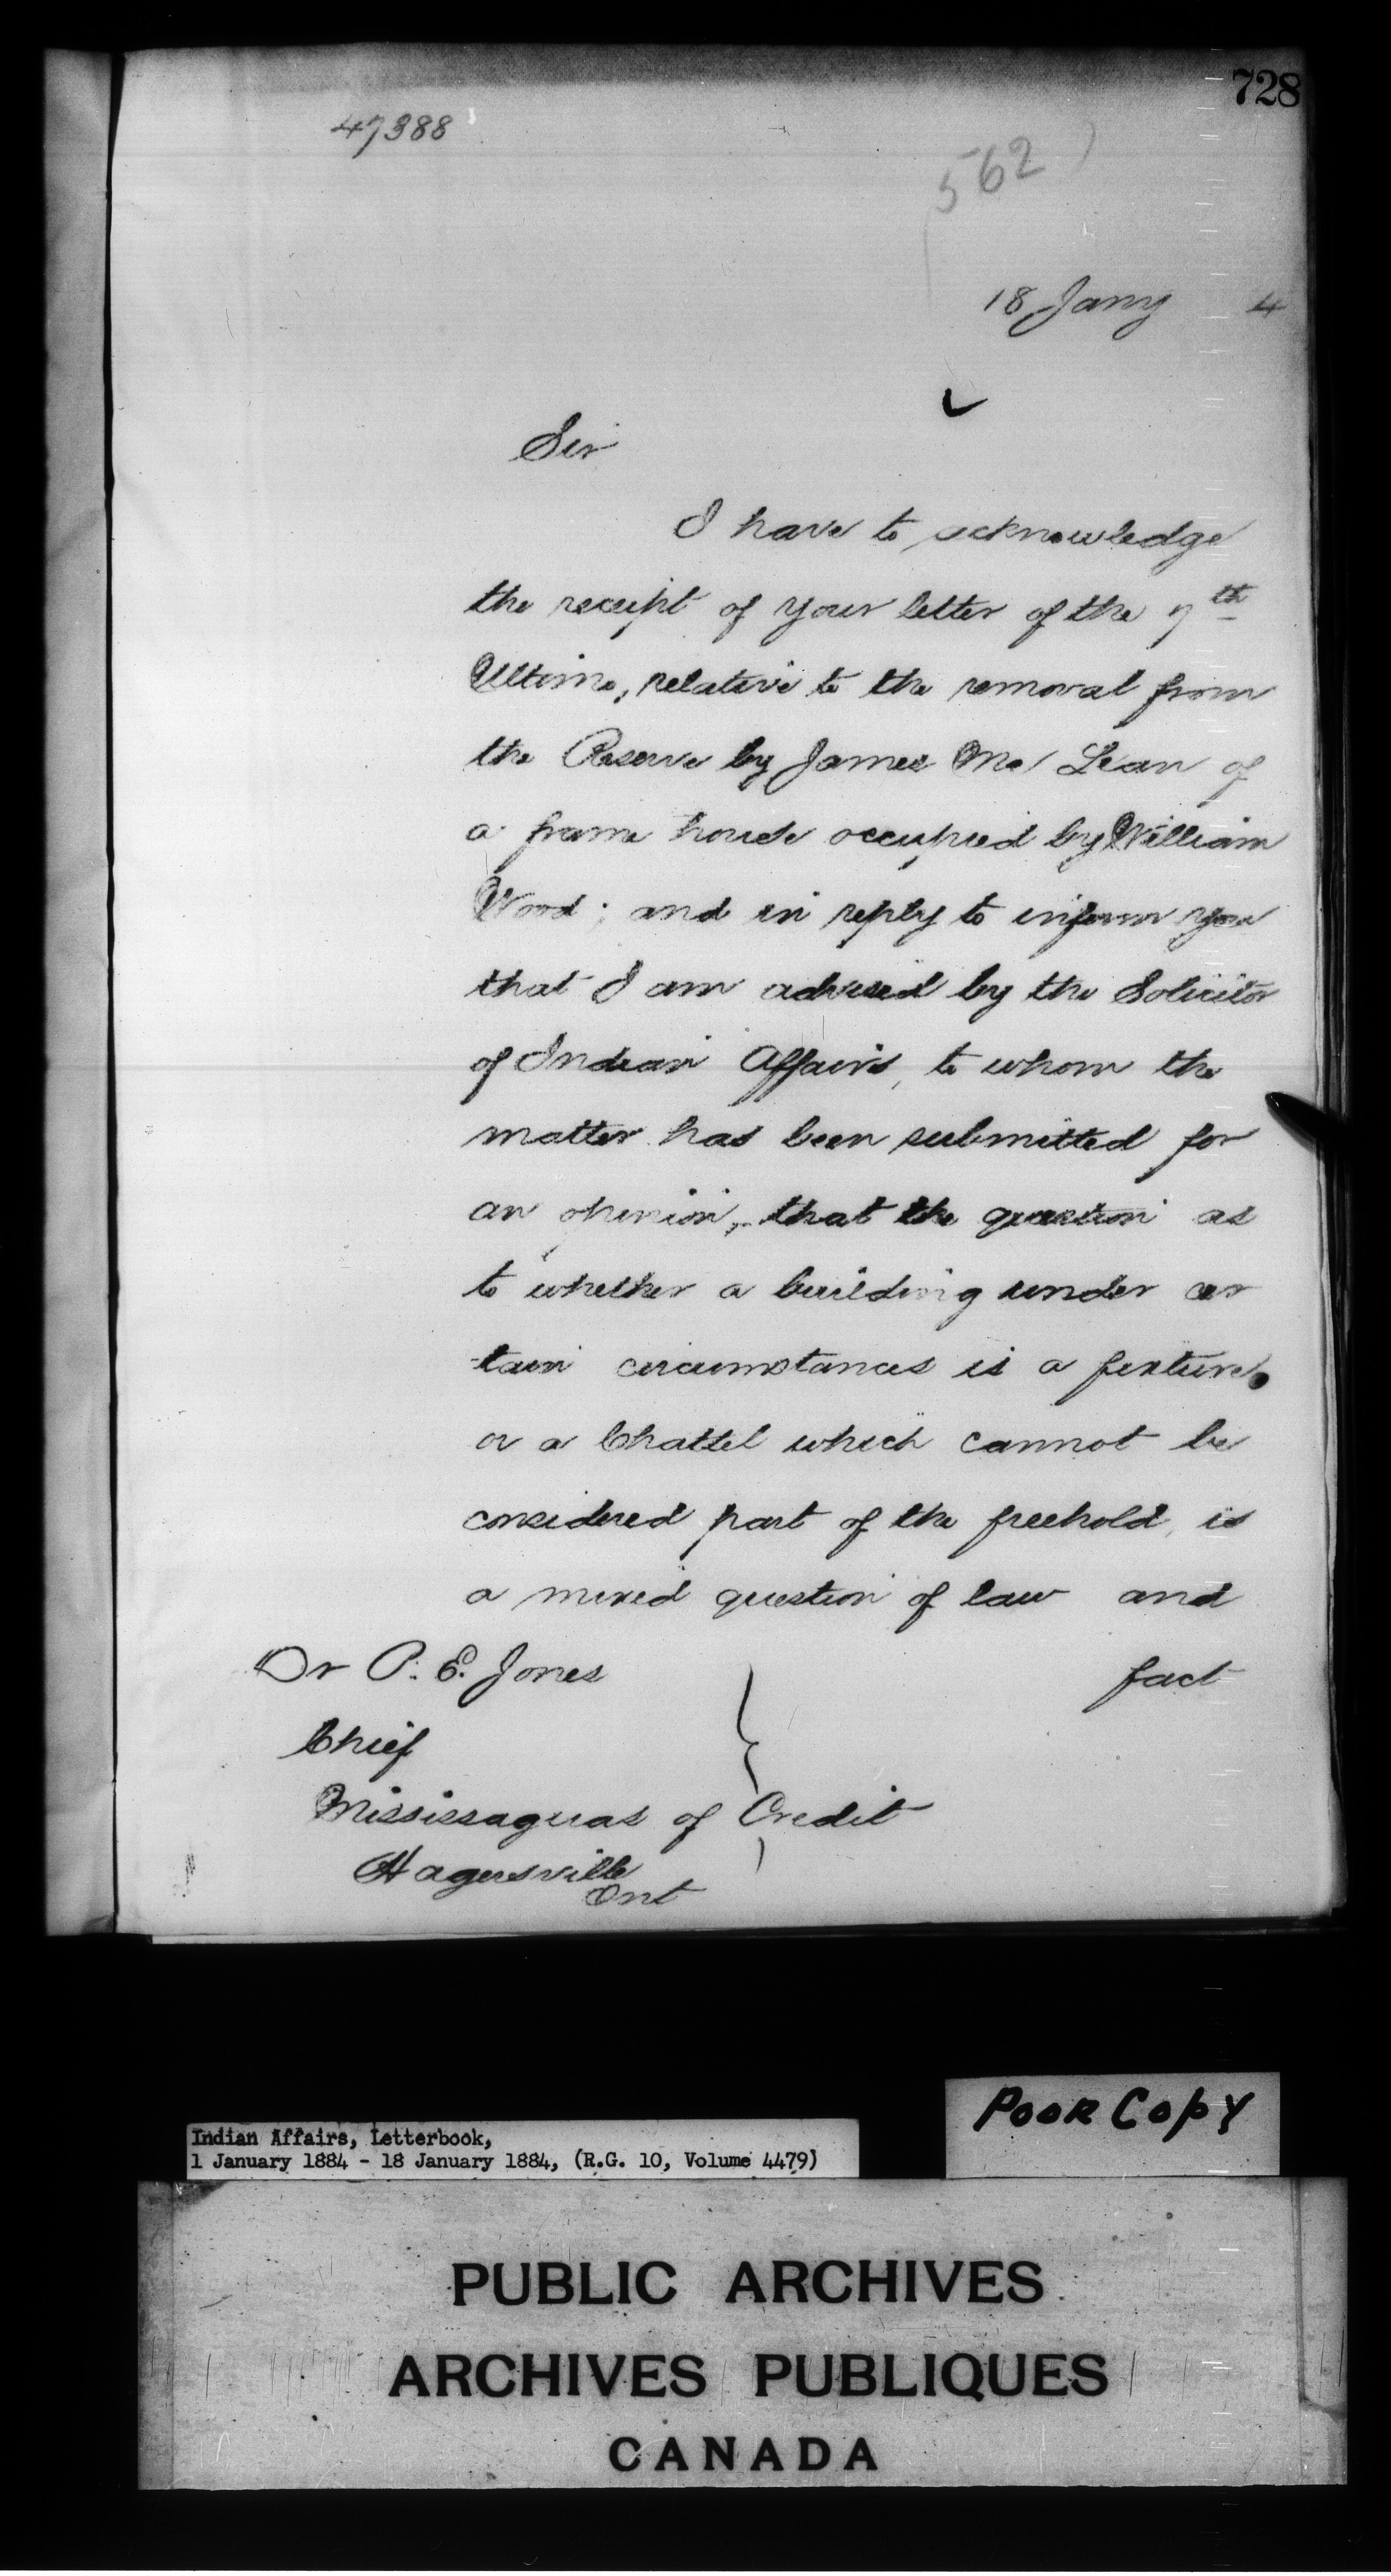 728
47388
562
18 Jany 4
Sir
I have to acknowledge
the receipt of your letter of the 7th
Ultimo, relative to the removal from
the Reserve by James Mc Lean of
a frame house occupied by William
Wood; and in reply to inform you
that I am advised by the Solicitor
of Indian Affairs, to whom the
matter has been submitted for
an opinion, that the question as
to whether a building under cer
-tain circumstances is a fixture,
or a Chattel which cannot be
considered part of the freehold, is
a mixed question of law and
fact
Dr P. E. Jones
Chief
Mississaguas of Credit
Hagersville
Ont
Poor Copy
Indian Affairs, Letterbook,
1 January 1884 - 18 January 1884, (R.G. 10, Volume 4479)
PUBLIC ARCHIVES
ARCHIVES PUBLIQUES
CANADA